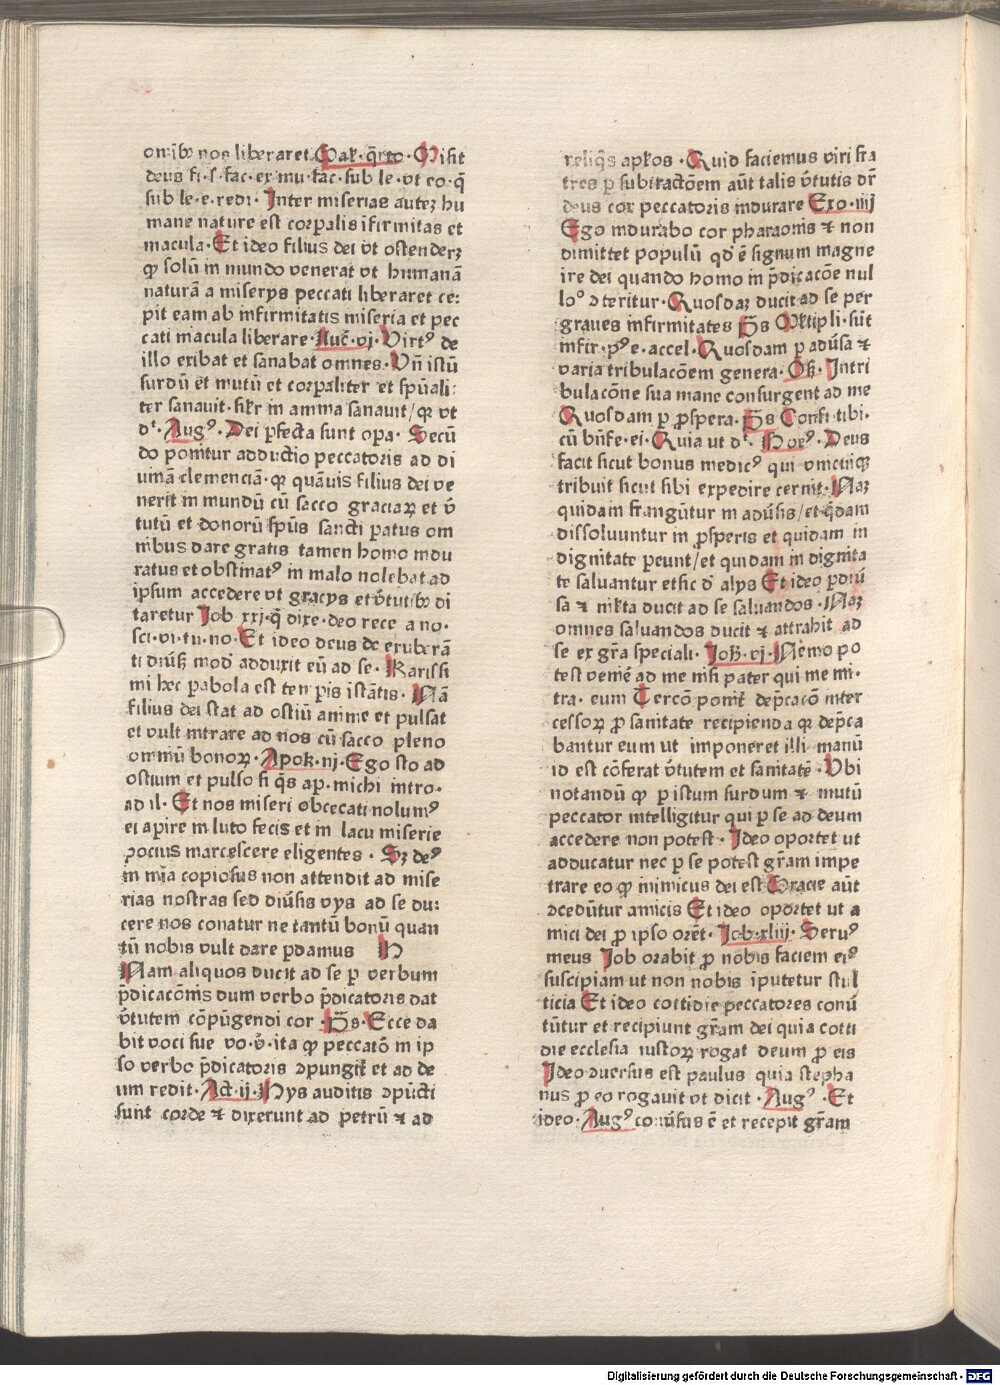 omībꝫ nos liberaret. Gak̄. q̄rto. Misit
deus fi. s. fac. ex mu. fac. sub le. vt eo. q̄
sub le. e. redi. Inter miserias autez hu
mane nature est corpalis īfirmitas et
macula. Et ideo filius dei vt ostenderꝫ
ꝙ solū in mundo venerat vt humanā
naturā a miserys peccati liberaret ce:
pit eam ab infirmitatis miseria et pec
cati macula liberare. Luc̄. vj. Virtꝰ de
illo exibat et sanabat omnes. Vn̄ istū
surdū et mutū et corpaliter et sp̄uali:
ter sanauit. sil̄r in anima sanauit/ qꝛ vt
dt. Augꝰ. Dei pfecta sunt opa. Secū
do ponitur adductio peccatoris ad di
uinā clemenciā. qꝛ quāuis filius dei ve
nerit in mundū cū sacco graciaꝝ et v̄
tutū et donorū sp̄us sancti patus om
nibus dare gratis tamen homo indu
ratus et obstinatꝰ in malo nolebat ad
ipsum accedere vt gracys et v̄tutibꝫ di
taretur Job xxj. q̄ dixe. deo rece a no.
sci. vi. tu. no. Et ideo deus de exuberā
ti diūs̄ mod̄ adduxit eū ad se. Karissi
mi hec pabola est tempis istātis. Nā
filius dei stat ad ostiū anime et pulsat
et vult intrare ad nos cū sacco pleno
omniū bonoꝝ. Apok̄. iij. Ego sto ad
ostium et pulso si q̄s ap. michi intro.
ad il. Et nos miseri obcecati nolumꝰ
ei apire in luto fecis et in lacu miserie
pocius marcescere eligentes. Sꝫ deꝰ
in mīa copiosus non attendit ad mise
rias nostras sed diūsis vys ad se du:
cere nos conatur ne tantū bonū quan
tū nobis vult dare pdamus N
Nam aliquos ducit ad se p verbum
p̄dicacōnis dum verbo p̄dicatoris dat
v̄tutem cōpūgendi cor. P̄s. Ecce da
bit voci sue vo. v̄. ita ꝙ peccatō in ip
so verbo p̄dicatoris ꝯpungit̄ et ad de
um redit. Act. ij. Hys auditis ꝯpūcti
sunt corde ⁊ dixerunt ad petrū ⁊ ad
reliq̄s apl̄os. Quid faciemus viri fra
tres p subtractōem aūt talis v̄tutis dr̄
deus cor peccatoris indurare Exo. iiij
Ego indurabo cor pharaonis ⁊ non
dimittet populū qd̄ ē signum magne
ire dei quando homo in p̄dicacōe nul
loº ꝯteritur. Quosdaꝫ ducit ad se per
graues infirmitates P̄s Mltipli. sūt
infir. pꝰ e. accel. Quosdam p adūsa ⁊
varia tribulacōem genera. Ps̄. Intri
bulacōne sua mane consurgent ad me
Quosdam p ꝓspera. P̄s Confi. tibi.
cū bn̄fe. ei. Quia ut dt. Greꝰ. Deus
facit sicut bonus medicꝰ qui vnicuiqꝫ
tribuit sicut sibi expedire cernit. Naꝫ
quidam frangūtur in adūsis/ et q̄dam
dissoluuntur in ꝓsperis et quidam in
dignitate peunt/ et quidam in dignita
te saluantur et sic d̄ alys Et ideo p diū
sa ⁊ nik̄ta ducit ad se saluandos. Naꝫ
omnes saluandos ducit ⁊ attrahit ad
se ex gr̄a speciali. Joh̄. vj. Nemo po
test venire ad me nisi pater qui me mi.
tra. eum Tercō ponit̄ dep̄cacō inter
cessoꝝ ꝓ sanitate recipienda qꝛ dep̄ca
bantur eum ut imponeret illi manū
id est cōferat v̄tutem et sanitatē. Vbi
notandū ꝙ p istum surdum ⁊ mutū
peccator intelligitur qui p se ad deum
accedere non potest. Ideo oportet ut
adducatur nec p se potest gr̄am impe
trare eo ꝙ inimicus dei est Gracie aūt
ꝯcedūtur amicis Et ideo oportet ut a
mici dei ꝓ ipso orēt. Job. xliij. Seruꝰ
meus Job orabit ꝓ nobis faciem eiꝰ
suscipiam ut non nobis īputetur stul
ticia Et ideo cottidie peccatores conū
tūtur et recipiunt gr̄am dei quia cotti
die ecclesia iustoꝝ rogat deum ꝓ eis
Ideo ꝯuersus est paulus quia stepha
nus ꝓ eo rogauit vt dicit. Augꝰ. Et
ideo. Augꝰ conūsus ē et recepit gr̄am
Digitalisierung gefördert durch die Deutsche Forschungsgemeinschaft - DFG